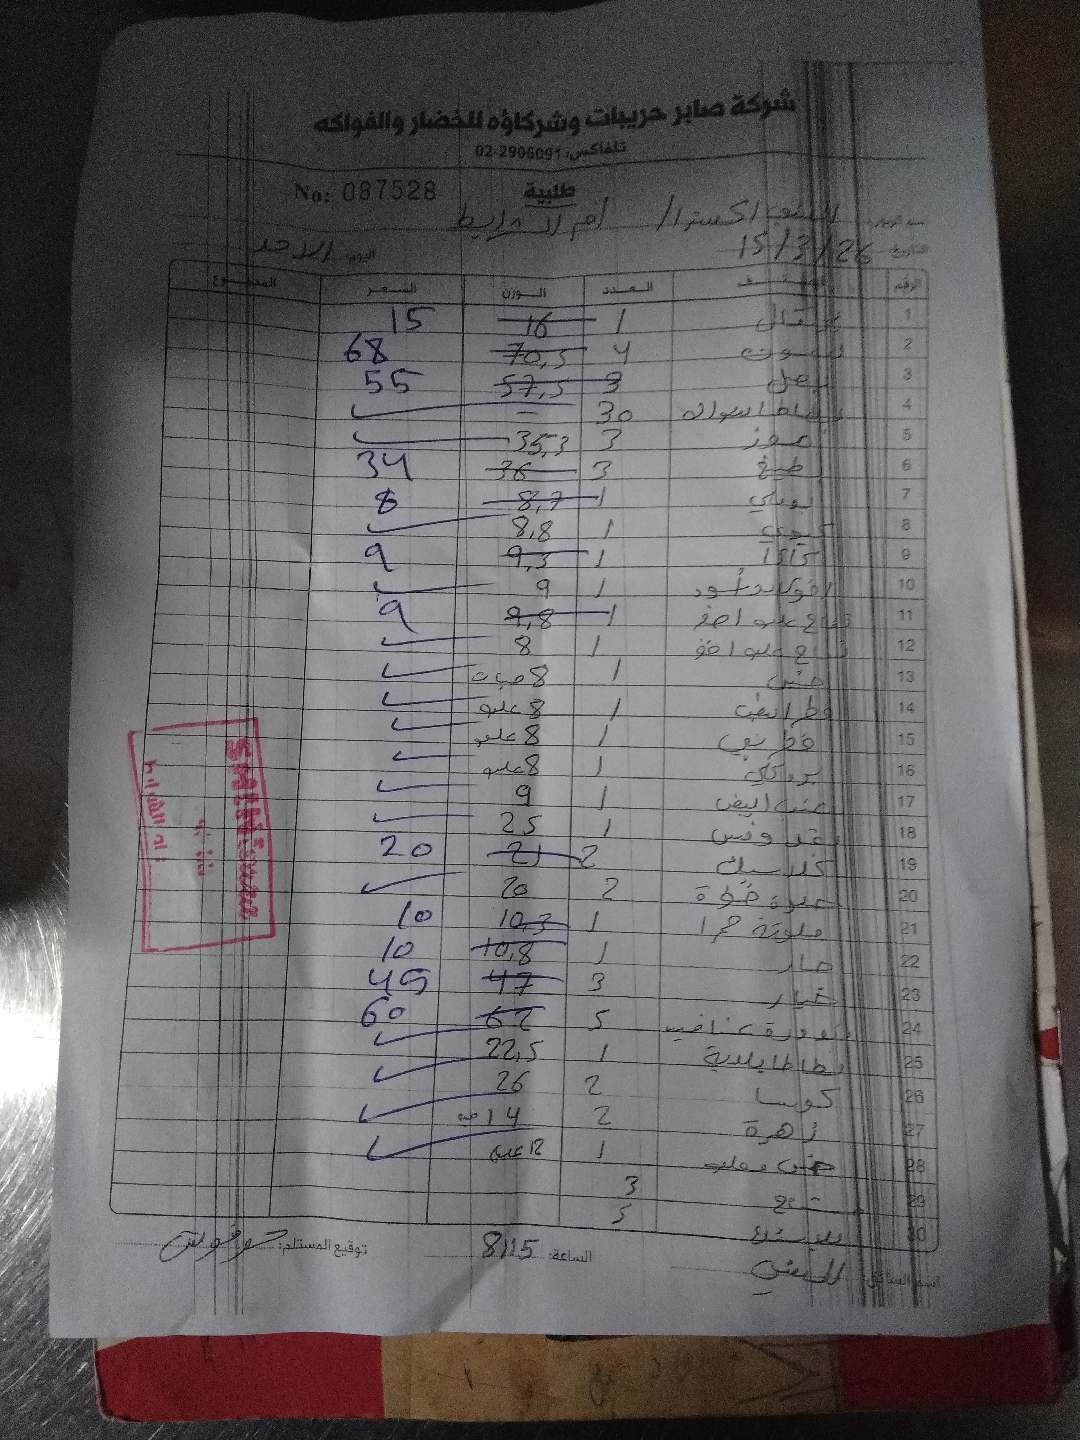 شركة صابر حريبات وشركاؤه للخضار والفواكه
تلفاكس: 02-2906091
طلبية
No: 087528
اكسترا / ام الشرايط
التاريخ: 15/3/26 اليوم: الاحد
الرقم الصنف العدد الوزن السعر المجموع
1 برتقال 1 16 15
2 ليمون 4 70,5 68
3 بصل 3 57,5 55
4 30 –
5 موز 3 35,3
6 بطيخ 3 36 34
7 بوملي 1 8,7 8
8 1 8,8
9 كاكا 1 9,3 9
10 افوكادو اسود 1 9
11 تفاح 1 9,8 9
12 تفاح 1 8
13 خس 1 8 حبات
14 فطر ابيض 1 8 علبه
15 فطر بني 1 8 علبه
16 بروكلي 1 8 علبه
17 عنب ابيض 1 9
18 بقدونس 1 25
19 كلاسيك 2 21 20
20 حلوة 2 20
21 ملونة حمرا 1 10,3 10
22 حار 1 10,8 10
23 خيار 3 47 45
24 بندورة عناقيد 5 62 60
25 بطاطا بلدية 1 22,5
26 كوسا 2 26
27 زهرة 2 14 حبه
28 خس 1 12 علبه
29 3
30 5
اسم السائق: الساعة: 8:15 توقيع المستلم: